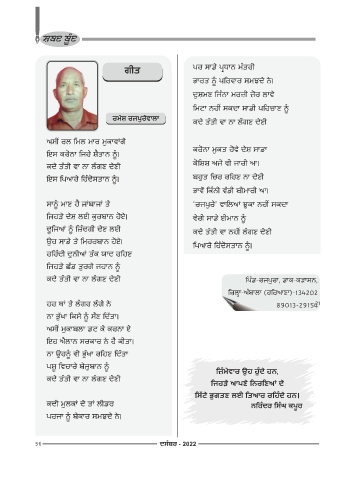 ਸ਼ਬਦ ਬੂੰਦ
ਗੀਤ
ਰਮੇਸ਼ ਰਜਪੁਰੇਵਾਲਾ
ਅਸੀਂ ਰਲ ਮਿਲ ਮਾਰ ਮੁਕਾਵਾਂਗੇ
ਇਸ ਕਰੋਨਾ ਜਿਹੇ ਸ਼ੈਤਾਨ ਨੂੰ।
ਕਦੇ ਤੱਤੀ ਵਾ ਨਾ ਲੱਗਣ ਦੇਣੀ
ਇਸ ਪਿਆਰੇ ਹਿੰਦੋਸਤਾਨ ਨੂੰ।
ਸਾਨੂੰ ਮਾਣ ਹੈ ਜਾਂਬਾਜਾਂ ਤੇ
ਜਿਹੜੇ ਦੇਸ਼ ਲਈ ਕੁਰਬਾਨ ਹੋਏ।
ਦੂਜਿਆਂ ਨੂੰ ਜ਼ਿੰਦਗੀ ਦੇਣ ਲਈ
ਉਹ ਸਾਡੇ ਤੇ ਮਿਹਰਬਾਨ ਹੋਏ।
ਰਹਿੰਦੀ ਦੁਨੀਆਂ ਤੱਕ ਯਾਦ ਰਹਿਣ
ਜਿਹੜੇ ਛੱਡ ਤੁਰਗੇ ਜਹਾਨ ਨੂੰ
ਕਦੇ ਤੱਤੀ ਵਾ ਨਾ ਲੱਗਣ ਦੇਣੀ
ਹਰ ਥਾਂ ਤੇ ਲੰਗਰ ਲੱਗੇ ਨੇ
ਨਾ ਭੁੱਖਾ ਕਿਸੇ ਨੂੰ ਸੌਣ ਦਿੱਤਾ।
ਅਸੀਂ ਮੁਕਾਬਲਾ ਡਟ ਕੇ ਕਰਨਾ ਏ
ਇਹ ਐਲਾਨ ਸਰਕਾਰ ਨੇ ਹੈ ਕੀਤਾ।
ਨਾ ਉਹਨੂੰ ਵੀ ਭੁੱਖਾ ਰਹਿਣ ਦਿੱਤਾ
ਪਸ਼ੂ ਵਿਚਾਰੇ ਬੇਜ਼ੁਬਾਨ ਨੂੰ
ਕਦੇ ਤੱਤੀ ਵਾ ਨਾ ਲੱਗਣ ਦੇਣੀ
ਕਈ ਮੁਲਕਾਂ ਦੇ ਤਾਂ ਲੀਡਰ
ਪਰਜਾ ਨੂੰ ਬੇਕਾਰ ਸਮਝਦੇ ਨੇ।
ਪਰ ਸਾਡੇ ਪ੍ਰਧਾਨ ਮੰਤਰੀ
ਭਾਰਤ ਨੂੰ ਪਰਿਵਾਰ ਸਮਝਦੇ ਨੇ।
ਦੁਸ਼ਮਣ ਜਿੰਨਾ ਮਰਜ਼ੀ ਜੋਰ ਲਾਵੇ
ਮਿਟਾ ਨਹੀਂ ਸਕਦਾ ਸਾਡੀ ਪਹਿਚਾਣ ਨੂੰ
ਕਦੇ ਤੱਤੀ ਵਾ ਨਾ ਲੱਗਣ ਦੇਣੀ
ਕਰੋਨਾ ਮੁਕਤ ਹੋਵੇ ਦੇਸ਼ ਸਾਡਾ
ਕੋਸ਼ਿਸ਼ ਅਜੇ ਵੀ ਜਾਰੀ ਆ।
ਬਹੁਤ ਚਿਰ ਰਹਿਣ ਨਾ ਦੇਣੀ
ਭਾਵੇਂ ਕਿੰਨੀ ਵੱਡੀ ਬੀਮਾਰੀ ਆ।
'ਰਜਪੁਰੇ' ਵਾਲਿਆਂ ਝੁਕਾ ਨਹੀਂ ਸਕਦਾ
ਵੈਰੀ ਸਾਡੇ ਈਮਾਨ ਨੂੰ
ਕਦੇ ਤੱਤੀ ਵਾ ਨਹੀਂ ਲੱਗਣ ਦੇਣੀ
ਪਿਆਰੇ ਹਿੰਦੋਸਤਾਨ ਨੂੰ।
ਪਿੰਡ-ਰਜਪੁਰਾ, ਡਾਕ-ਕੜਾਸਨ,
ਜ਼ਿਲ੍ਹਾ-ਅੰਬਾਲਾ (ਹਰਿਆਣਾ)-134202
89013-29154
ਜ਼ਿੰਮੇਵਾਰ ਉਹ ਹੁੰਦੇ ਹਨ,
ਜਿਹੜੇ ਆਪਣੇ ਨਿਰਣਿਆਂ ਦੇ
ਸਿੱਟੇ ਭੁਗਤਣ ਲਈ ਤਿਆਰ ਰਹਿੰਦੇ ਹਨ।
ਨਰਿੰਦਰ ਸਿੰਘ ਕਪੂਰ
56
ਦਸੰਬਰ - 2022